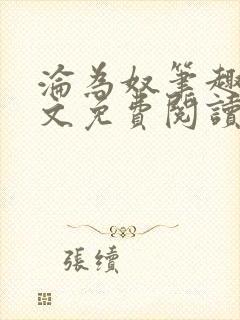 淪為奴筆趣
文免費閱讀
張續